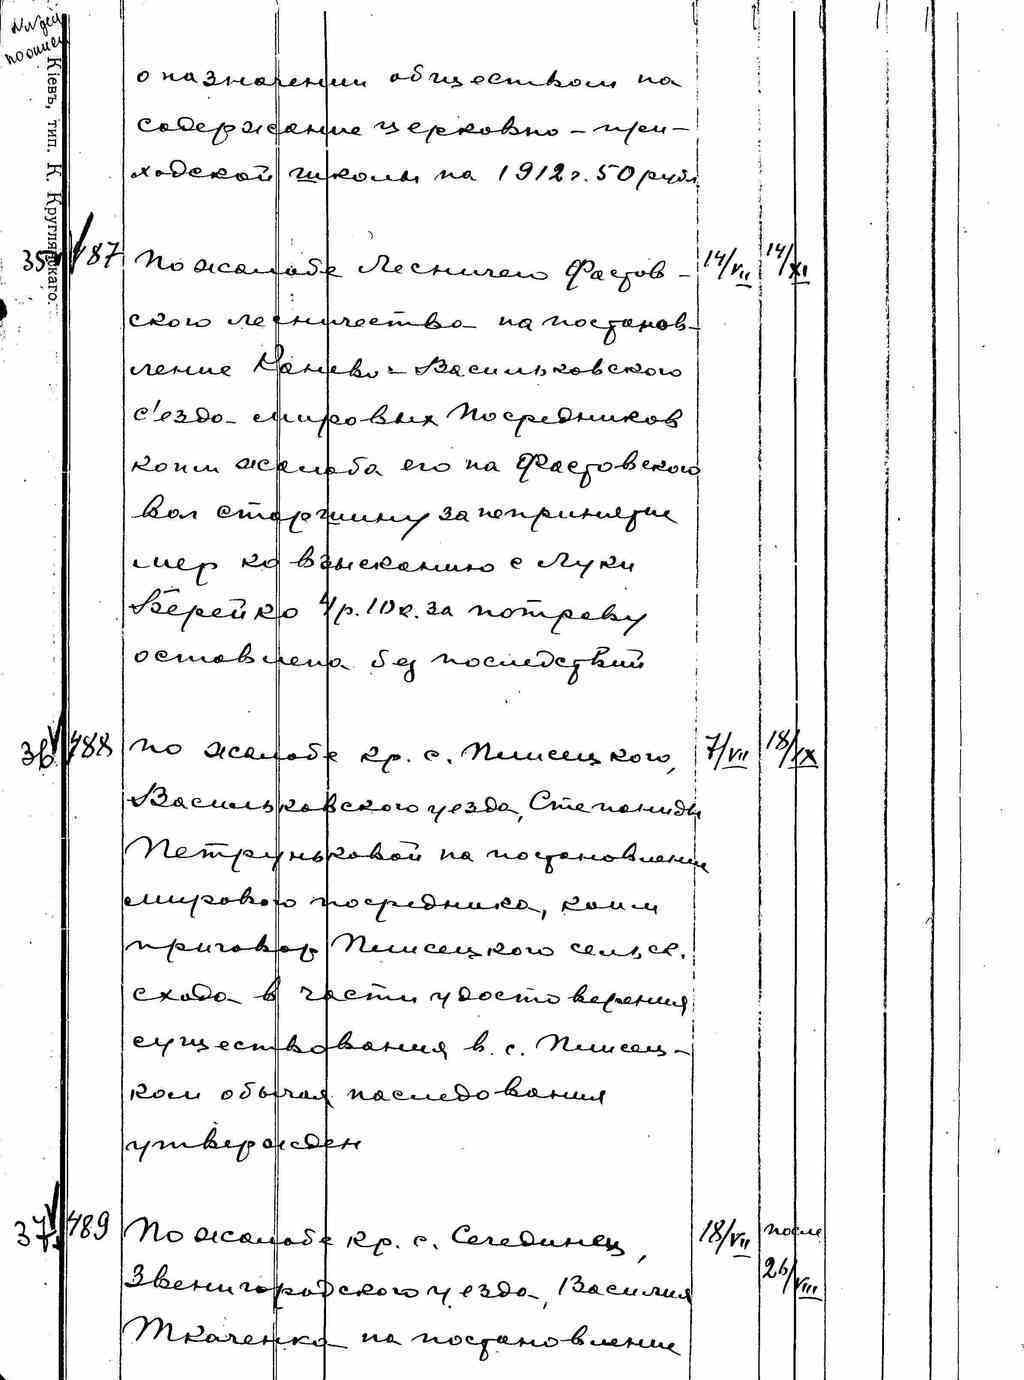 о назначении обществом на
содержание церковно-при-
ходской школы на 1912 г. 50 рубл.
Кіевъ, тип. К. Круглянскаго.
35 487 По жалобе Лесничего Фастов- 14/VII 14/XI
ского лесничества на постанов-
ление Канево-Васильковского
с'езда мировых Посредников
коим жалоба его на Фастовского
вол старшину за непринятие
мер ко взысканию с Луки
Берейко 4 р. 10 к. за потраву
оставлена без последствий
36 488 По жалобе кр. с. Плисецкого, 7/VII 18/IX
Васильковского уезда, Степаниды
Петруньковой на постановление
мирового посредника, коим
приговор Плисецкого сельск.
схода в части удостоверения
существования в с. Плисец-
ком обычая наследования
утвержден
37 489 По жалобе кр. с. Селединец, 18/VII после
26/VIII
Звенигородского уезда, Василия
Ткаченка на постановление